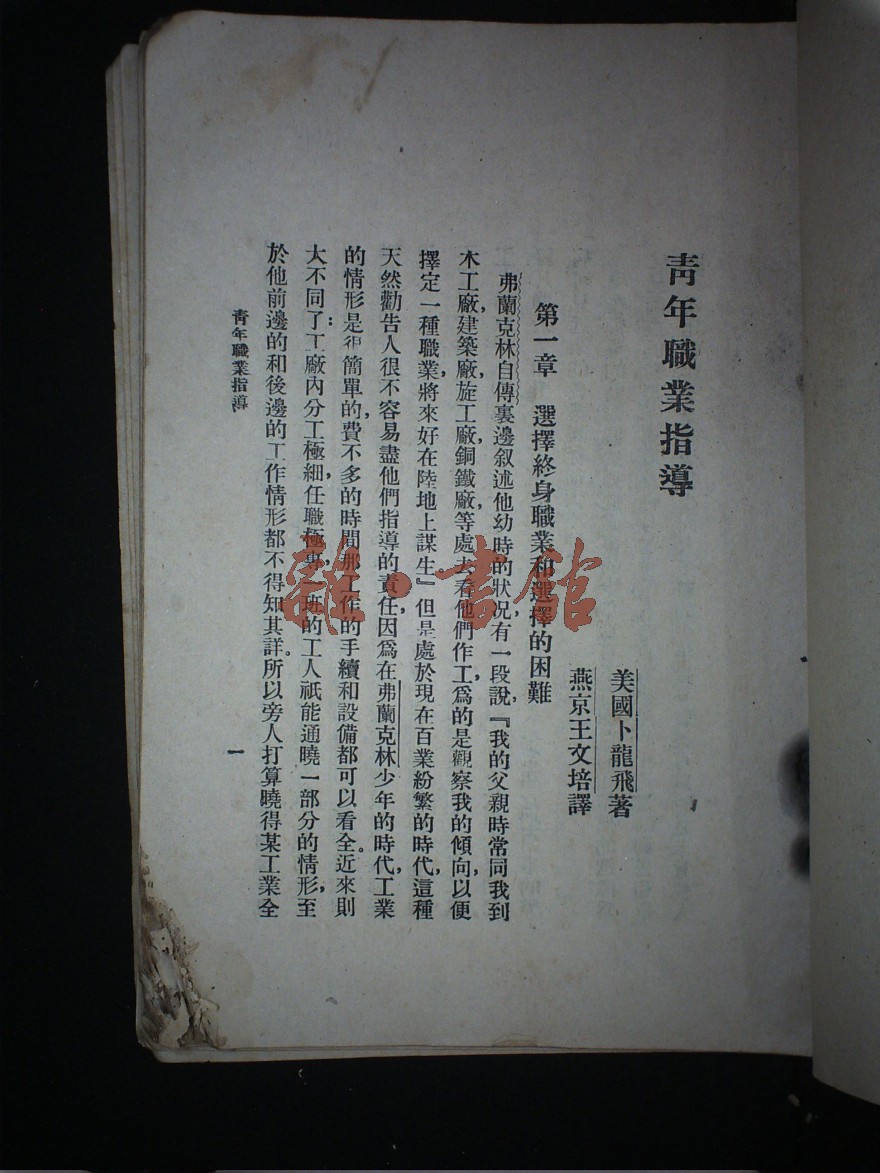 青年職業指導
美國卜龍飛著
燕京王文培譯
第一章　選擇終身職業和選擇的困難
弗蘭克林自傳裏邊叙述他幼時的狀况，有一段說，『我的父親時常同我到
木工廠，建築廠，旋工廠，銅鐵廠，等處去看他們作工，爲的是觀察我的傾向，以便
擇定一種職業，將來好在陸地上謀生』但是處於現在百業紛繁的時代，這種
天然勸告人很不容易盡他們指導的責任，因爲在弗蘭克林少年的時代，工業
的情形是很簡單的，費不多的時間那工作的手續和設備都可以看全。近來則
大不同了：工廠內分工極細，任職極專，一班的工人祇能通曉一部分的情形，至
於他前邊的和後邊的工作情形都不得知其詳。所以旁人打算曉得某工業全
青年職業指導
一
雜·書館